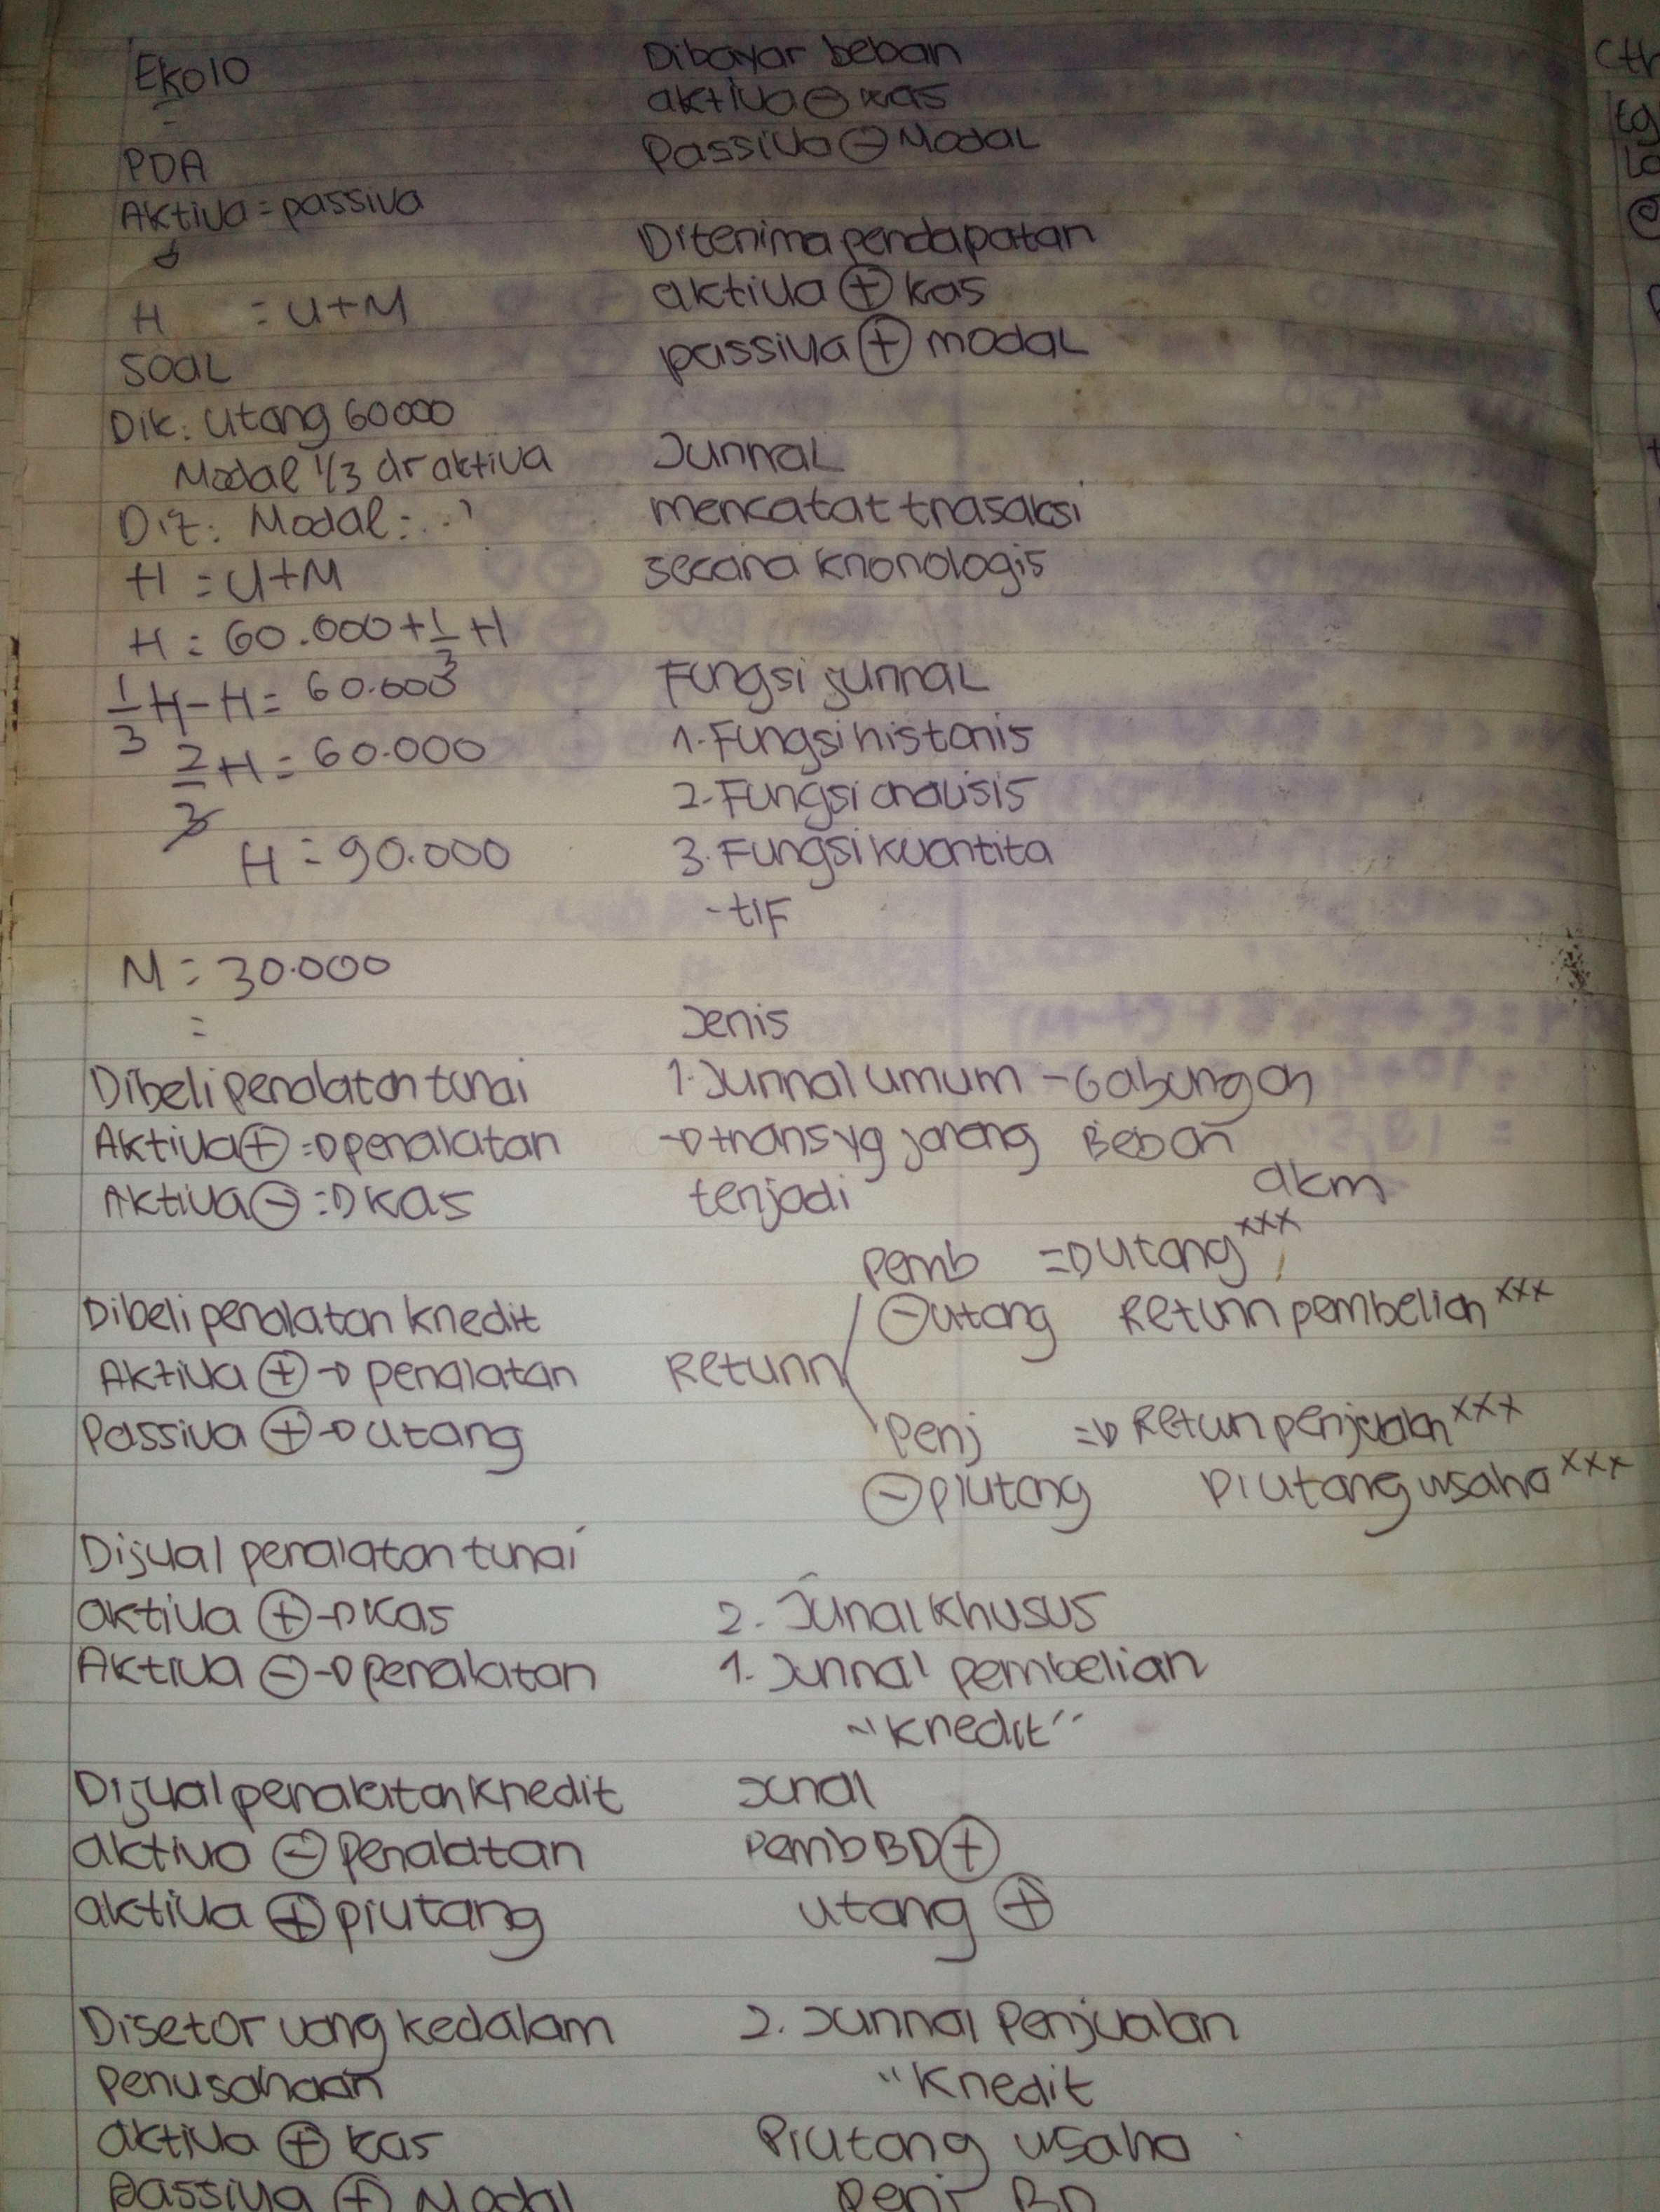 Eko10
PDA
Aktiva = passiva
H = U+M
SOAL
Dik: Utang 60000
Modal 1/3 dr aktiva
Dit: Modal: ..?
H = U+M
H = 60.000 + 1/3 H
1/3 H - H = 60.000
2/3 H = 60.000
H = 90.000
M = 30.000
=
Dibeli peralatan tunai
Aktiva ⊕ => peralatan
Aktiva ⊖ => Kas
Dibeli peralatan kredit
Aktiva ⊕ -> peralatan
Passiva ⊕ -> utang
Dijual peralatan tunai
aktiva ⊕ -> Kas
Aktiva ⊖ -> peralatan
Dijual peralatan kredit
aktiva ⊖ peralatan
aktiva ⊕ piutang
Disetor uang kedalam
perusahaan
aktiva ⊕ kas
passiva ⊕ Modal
Dibayar beban
aktiva ⊖ kas
Passiva ⊖ Modal
Diterima pendapatan
aktiva ⊕ kas
passiva ⊕ modal
Jurnal
mencatat trasaksi
secara kronologis
Fungsi jurnal
1. Fungsi historis
2. Fungsi analisis
3. Fungsi kuantita
-tif
Jenis
1. Jurnal umum - Gabungan
-> trans yg jarang Beban
terjadi akm
pemb => utang xxx
⊖ utang Return pembelian xxx
Return
Penj => Retur penjualan xxx
⊖ piutang Piutang usaha xxx
2. Junal Khusus
1. Jurnal pembelian
"Kredit"
Junal
Pemb BD ⊕
utang ⊕
2. Jurnal Penjualan
"Kredit
Piutang usaha
Penj BD